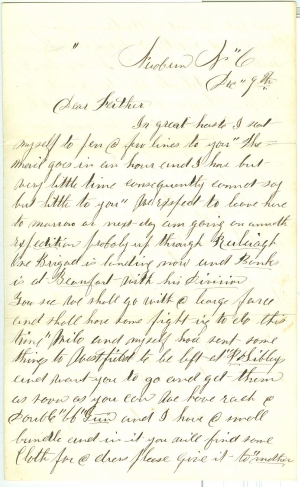 Newbern N" C
Dec "9th
Dear Father
In great haste I seat
myself to pen a few lines to you" The
mail goes in an hour and I have but
very little time consequently cannot say
but little to you" We expect to leave here
to morrow or next day am going on annoth
expedition probaly up through Raleiagh
One Brigad is landing now and Banks
is at Beaufort with his Division
You see we shall go with a learge force
and shall have some fight ing to do this
time" and myself have sent some
things to Westfield to be left at Sibleys
and want you to go and get them
as soon as you can We have each a
and I have a small
bundle and in it you will find some
Cloth for a dress please give it to "mother